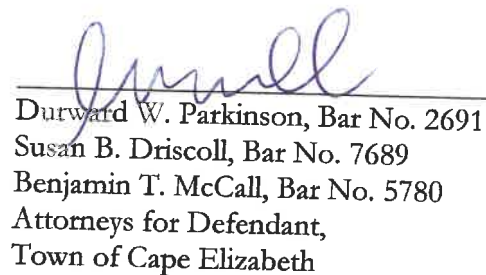 Durward W. Parkinson, Bar No. 2691
Susan B. Driscoll, Bar No. 7689
Benjamin T. McCall, Bar No. 5780
Attorneys for Defendant,
Town of Cape Elizabeth